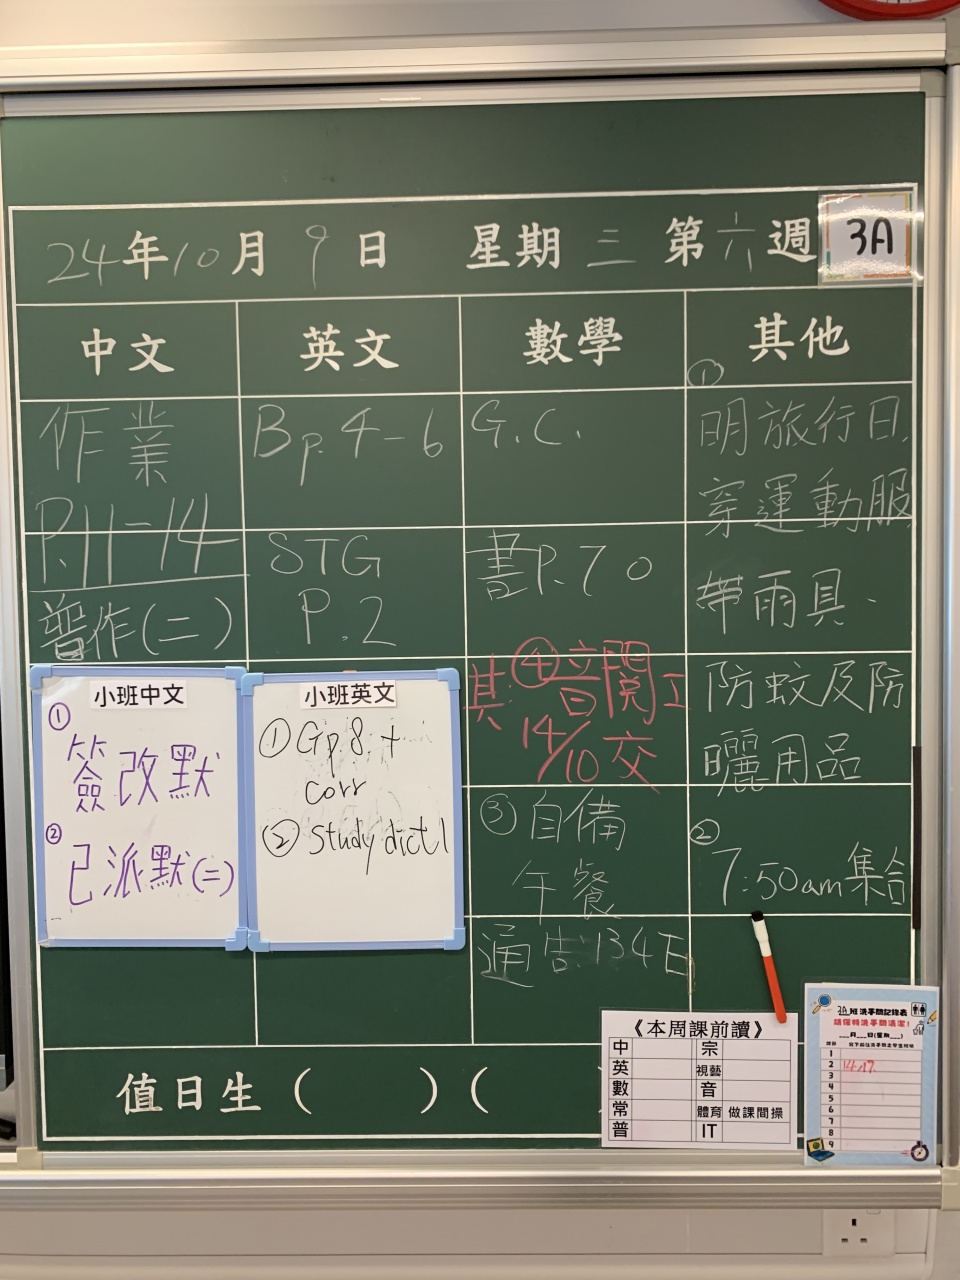 24年10月9日 星期三 第六週
3A
中文
英文
數學
其他
作業
P.11-14
P.11-14
普作(二)
Bp.4-6
STG
P.2
G.C.
書P.70
①
明旅行日.
穿運動服
帶雨具.
防蚊及防
曬用品
②
7:50am集合
其.④音閱工
14/10交
③自備
午餐
通告:134E
小班中文
①
簽改默
②
已派默(二)
小班英文
①Gp8 +
corr
②study dict 1
值日生( )(
《本周課前讀》
中
宗
英
視藝
數
音
常
體育 做課間操
普
IT
3A班洗手間記錄表
請保持洗手間清潔！
___月___日(星期___)
課節
1
2
3
4
5
6
7
8
9